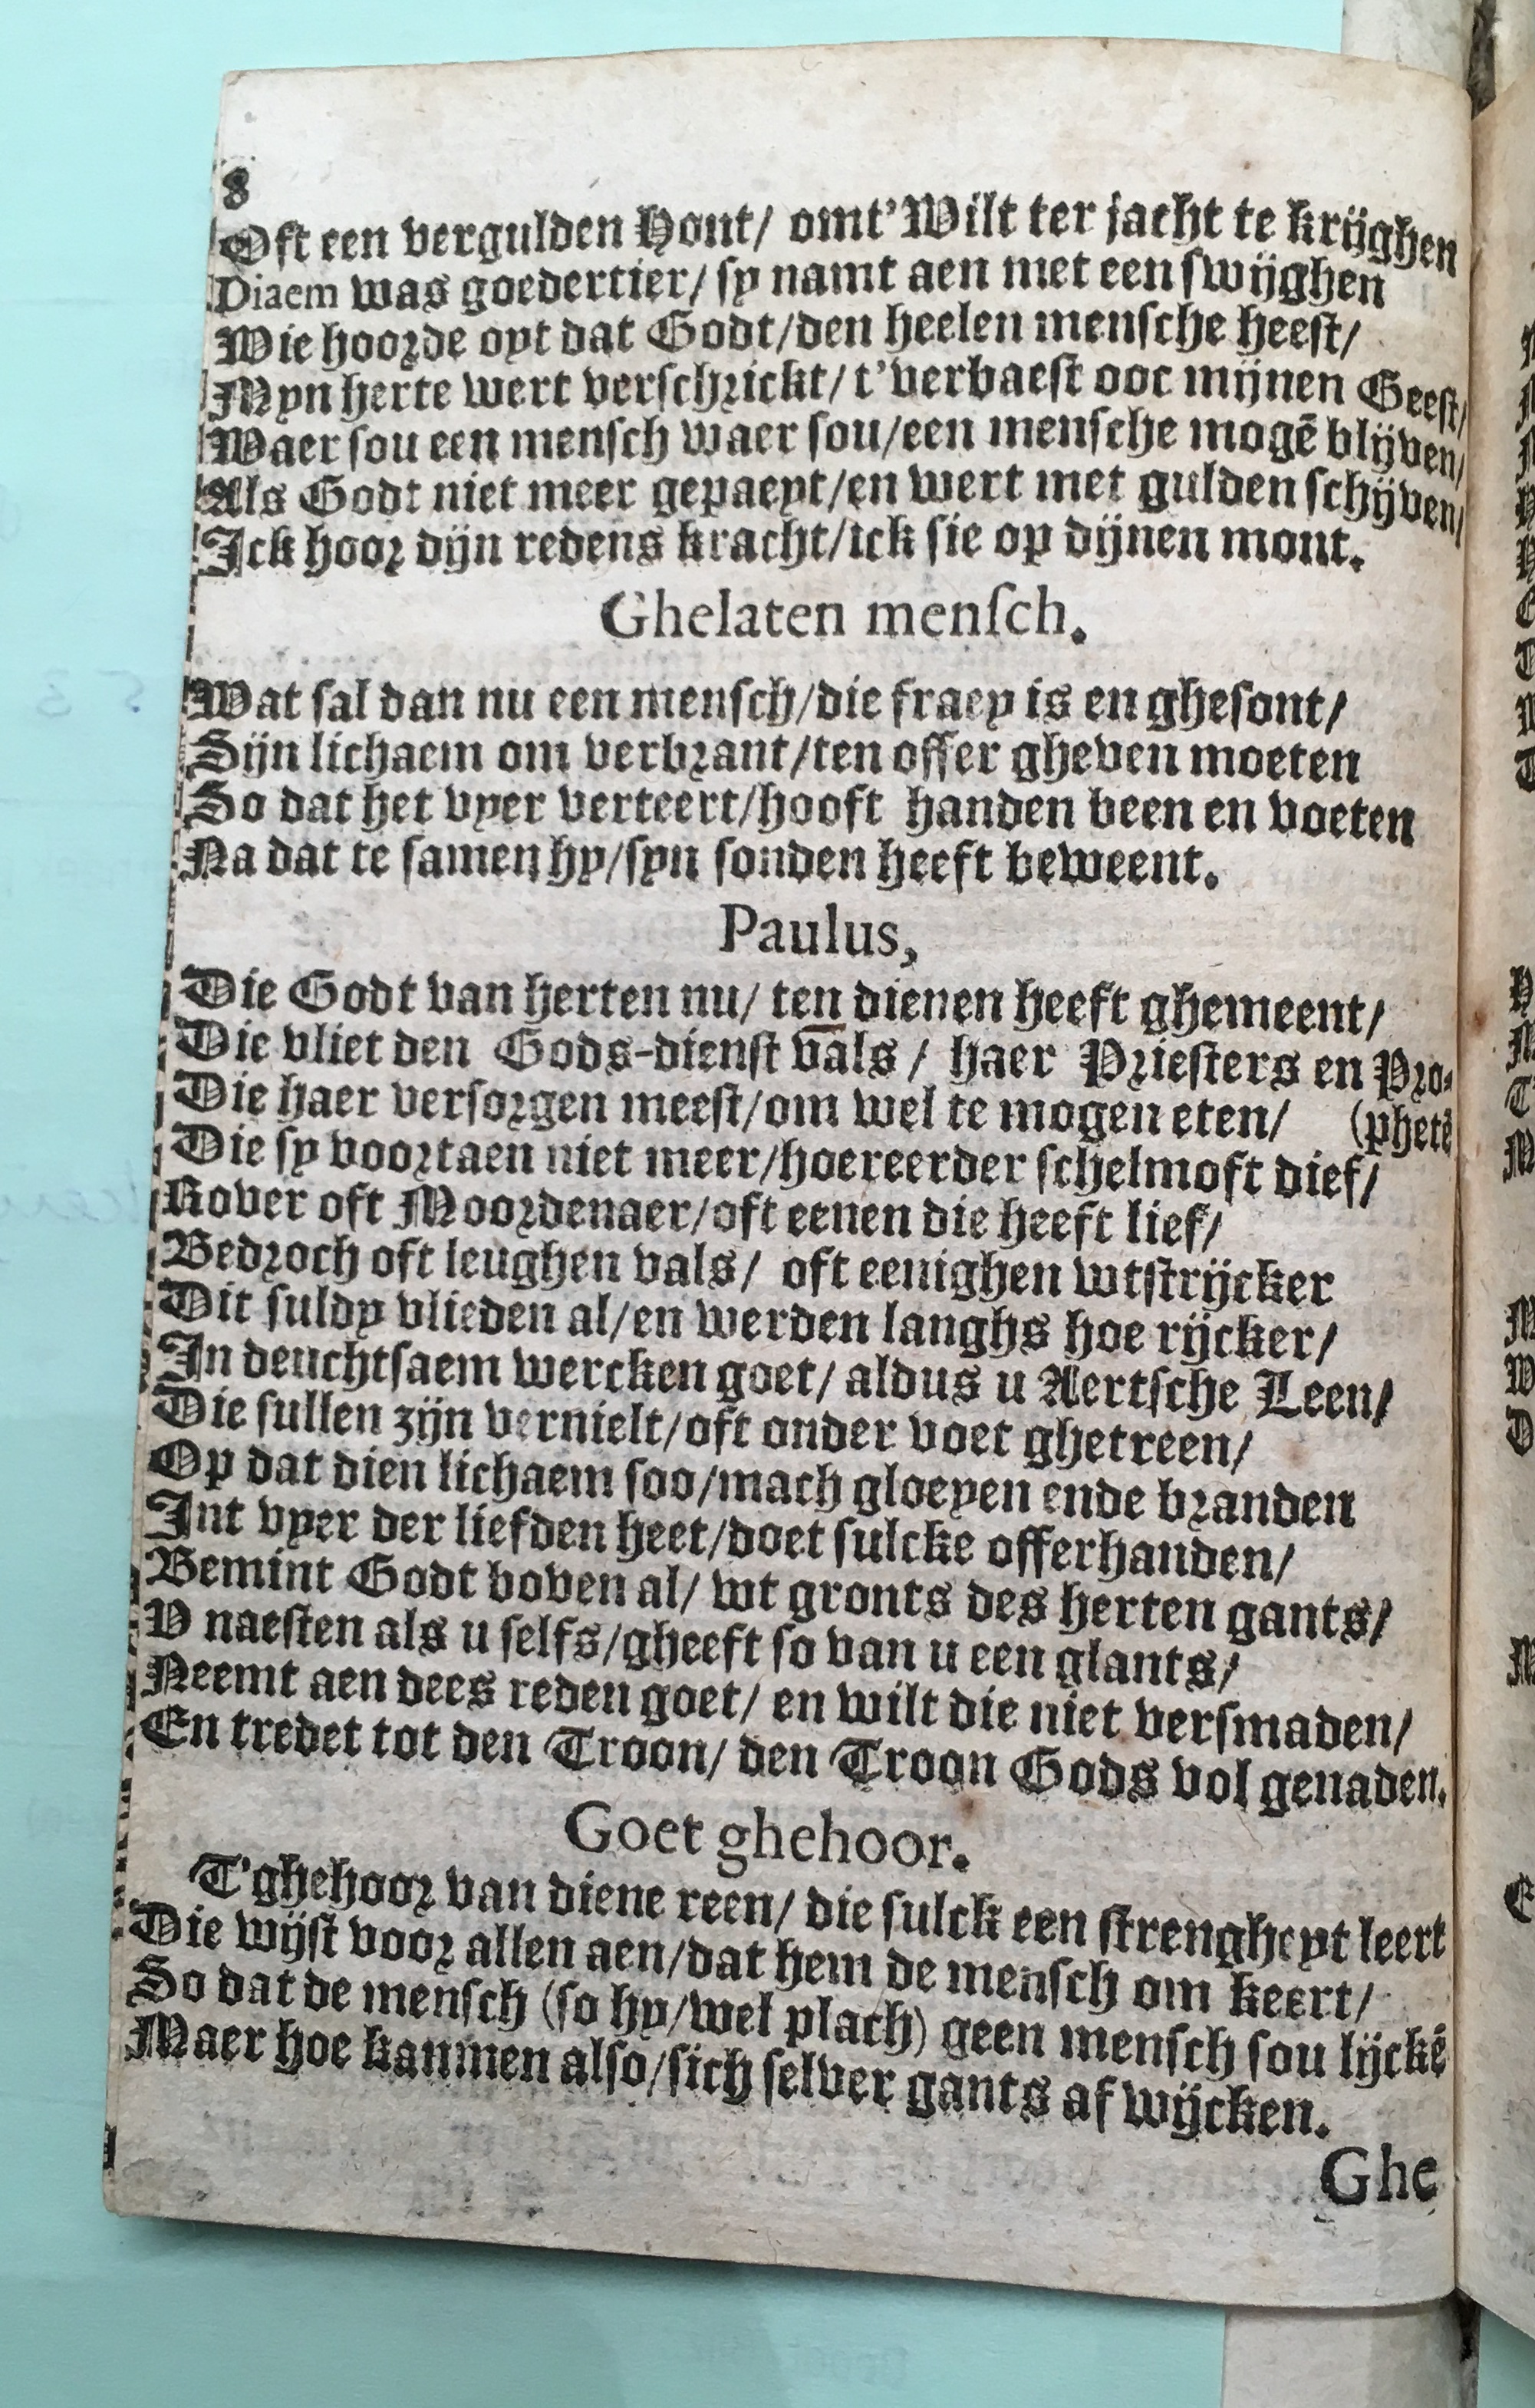 8
Oft een vergulden Hont/ omt'Wilt ter jacht te krijghen
Diaem was goedertier/ sy namt aen met een swijghen
Wie hoorde oyt dat Godt/den heelen mensche heest/
Myn herte wert verschrickt/ t'verbaest ooc mijnen Geest/
Waer sou een mensch waer sou/een mensche mogē blijven/
Als Godt niet meer gepaeyt/en wert met gulden schijven/
Ick hoor dijn redens kracht/ick sie op dijnen mont.
Ghelaten mensch.
Wat sal dan nu een mensch/die fraey is en ghesont/
Sijn lichaem om verbrant/ten offer gheven moeten
So dat het vyer verteert/hooft handen been en voeten
Na dat te samen hy/syn sonden heeft beweent.
Paulus,
Die Godt van herten nu/ ten dienen heeft ghemeent/
Die vliet den Gods-dienst vals / haer Priesters en Pro-
Die haer versorgen meest/om wel te mogen eten/ (phetē
Die sy voortaen niet meer/hoereerder schelmoft dief/
Rover oft Moordenaer/oft eenen die heeft lief/
Bedroch oft leughen vals/ oft eenighen wtstrijcker
Dit suldy vlieden al/en werden langhs hoe rijcker/
In deuchtsaem wercken goet/ aldus u Aertsche Leen/
Die sullen zijn vernielt/oft onder voet ghetreen/
Op dat dien lichaem soo/mach gloeyen ende branden
Int vyer der liefden heet/doet sulcke offerhanden/
Bemint Godt boven al/ wt gronts des herten gants/
V naesten als u selfs/gheeft so van u een glants/
Neemt aen dees reden goet/ en wilt die niet versmaden/
En tredet tot den Troon/ den Troon Gods vol genaden.
Goet ghehoor.
T'ghehoor van diene reen/ die sulck een strengheyt leert
Die wijst voor allen aen/dat hem de mensch om keert/
So dat de mensch (so hy/wel plach) geen mensch sou lijckē
Maer hoe kanmen also/sich selver gants af wijcken.
Ghe